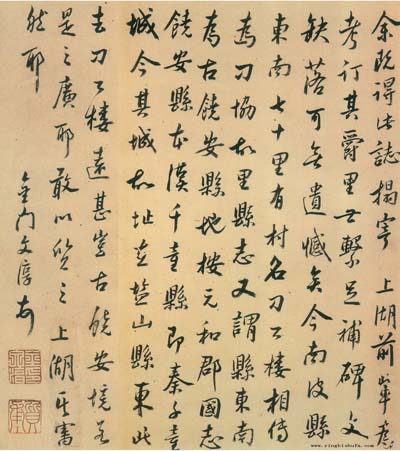 余既得此誌搨寄 上湖前輩
考訂其爵里世繫足補碑文
缺落可無遺憾矣今南皮縣
東南七十里有村名刁公樓相傳
為刁協故里縣志又謂縣東南
為古饒安縣地按元和郡國志
饒安縣本漢千童縣即秦千童
城今其城故址在鹽山縣東北
去刁公樓遠甚豈古饒安境若
是之廣耶敢以質之上湖其審
然耶
金門文淳
www.yingbishufa.com